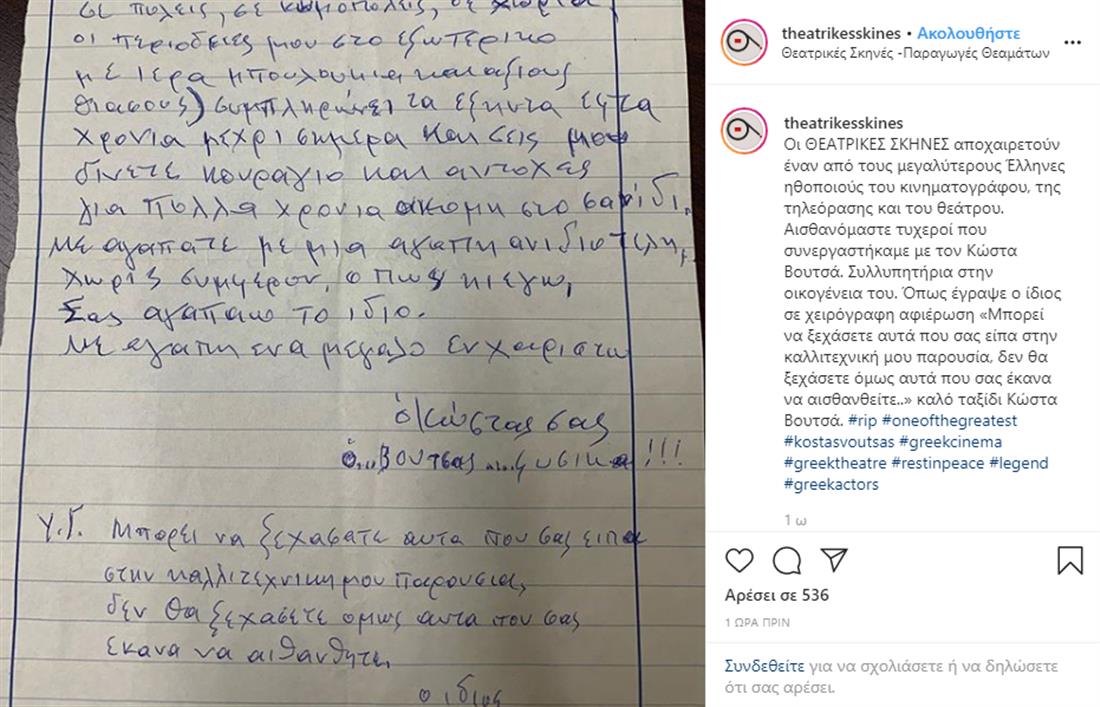 σε πόλεις, σε κωμοπόλεις, σε χωριά
οι περιοδειες μου στο εξωτερικο
με ιερα μπουλουκια και αξιους
θιασους) συμπληρωνει τα εξηντα εφτα
χρονια μεχρι σημερα και σεις μου
δινετε κουραγιο και αντοχες
για πολλα χρονια ακομη στο σανιδι.
Με αγαπατε με μια αγαπη ανιδιοτελη,
χωρις συμφερον, οπως κι εγω,
Σας αγαπαω το ιδιο.
Με αγαπη ενα μεγαλο ευχαριστω
ὁ Κωστας σας
ὁ... Βουτσας .... φυσικα!!!
Υ.Γ. Μπορει να ξεχασατε αυτα που σας ειπα
στην καλλιτεχνικη μου παρουσια,
δεν θα ξεχασετε ομως αυτα που σας
εκανα να αιθανθητε.
ο ιδιος
theatrikesskines • Ακολουθήστε
Θεατρικές Σκηνές -Παραγωγές Θεαμάτων
theatrikesskines
Οι ΘΕΑΤΡΙΚΕΣ ΣΚΗΝΕΣ αποχαιρετούν
έναν από τους μεγαλύτερους Έλληνες
ηθοποιούς του κινηματογράφου, της
τηλεόρασης και του θεάτρου.
Αισθανόμαστε τυχεροί που
συνεργαστήκαμε με τον Κώστα
Βουτσά. Συλλυπητήρια στην
οικογένεια του. Όπως έγραψε ο ίδιος
σε χειρόγραφη αφιέρωση «Μπορεί
να ξεχάσετε αυτά που σας είπα στην
καλλιτεχνική μου παρουσία, δεν θα
ξεχάσετε όμως αυτά που σας έκανα
να αισθανθείτε..» καλό ταξίδι Κώστα
Βουτσά. #rip #oneofthegreatest
#kostasvoutsas #greekcinema
#greektheatre #restinpeace #legend
#greekactors
1 ω
Αρέσει σε 536
1 ΩΡΑ ΠΡΙΝ
Συνδεθείτε για να σχολιάσετε ή να δηλώσετε
ότι σας αρέσει.